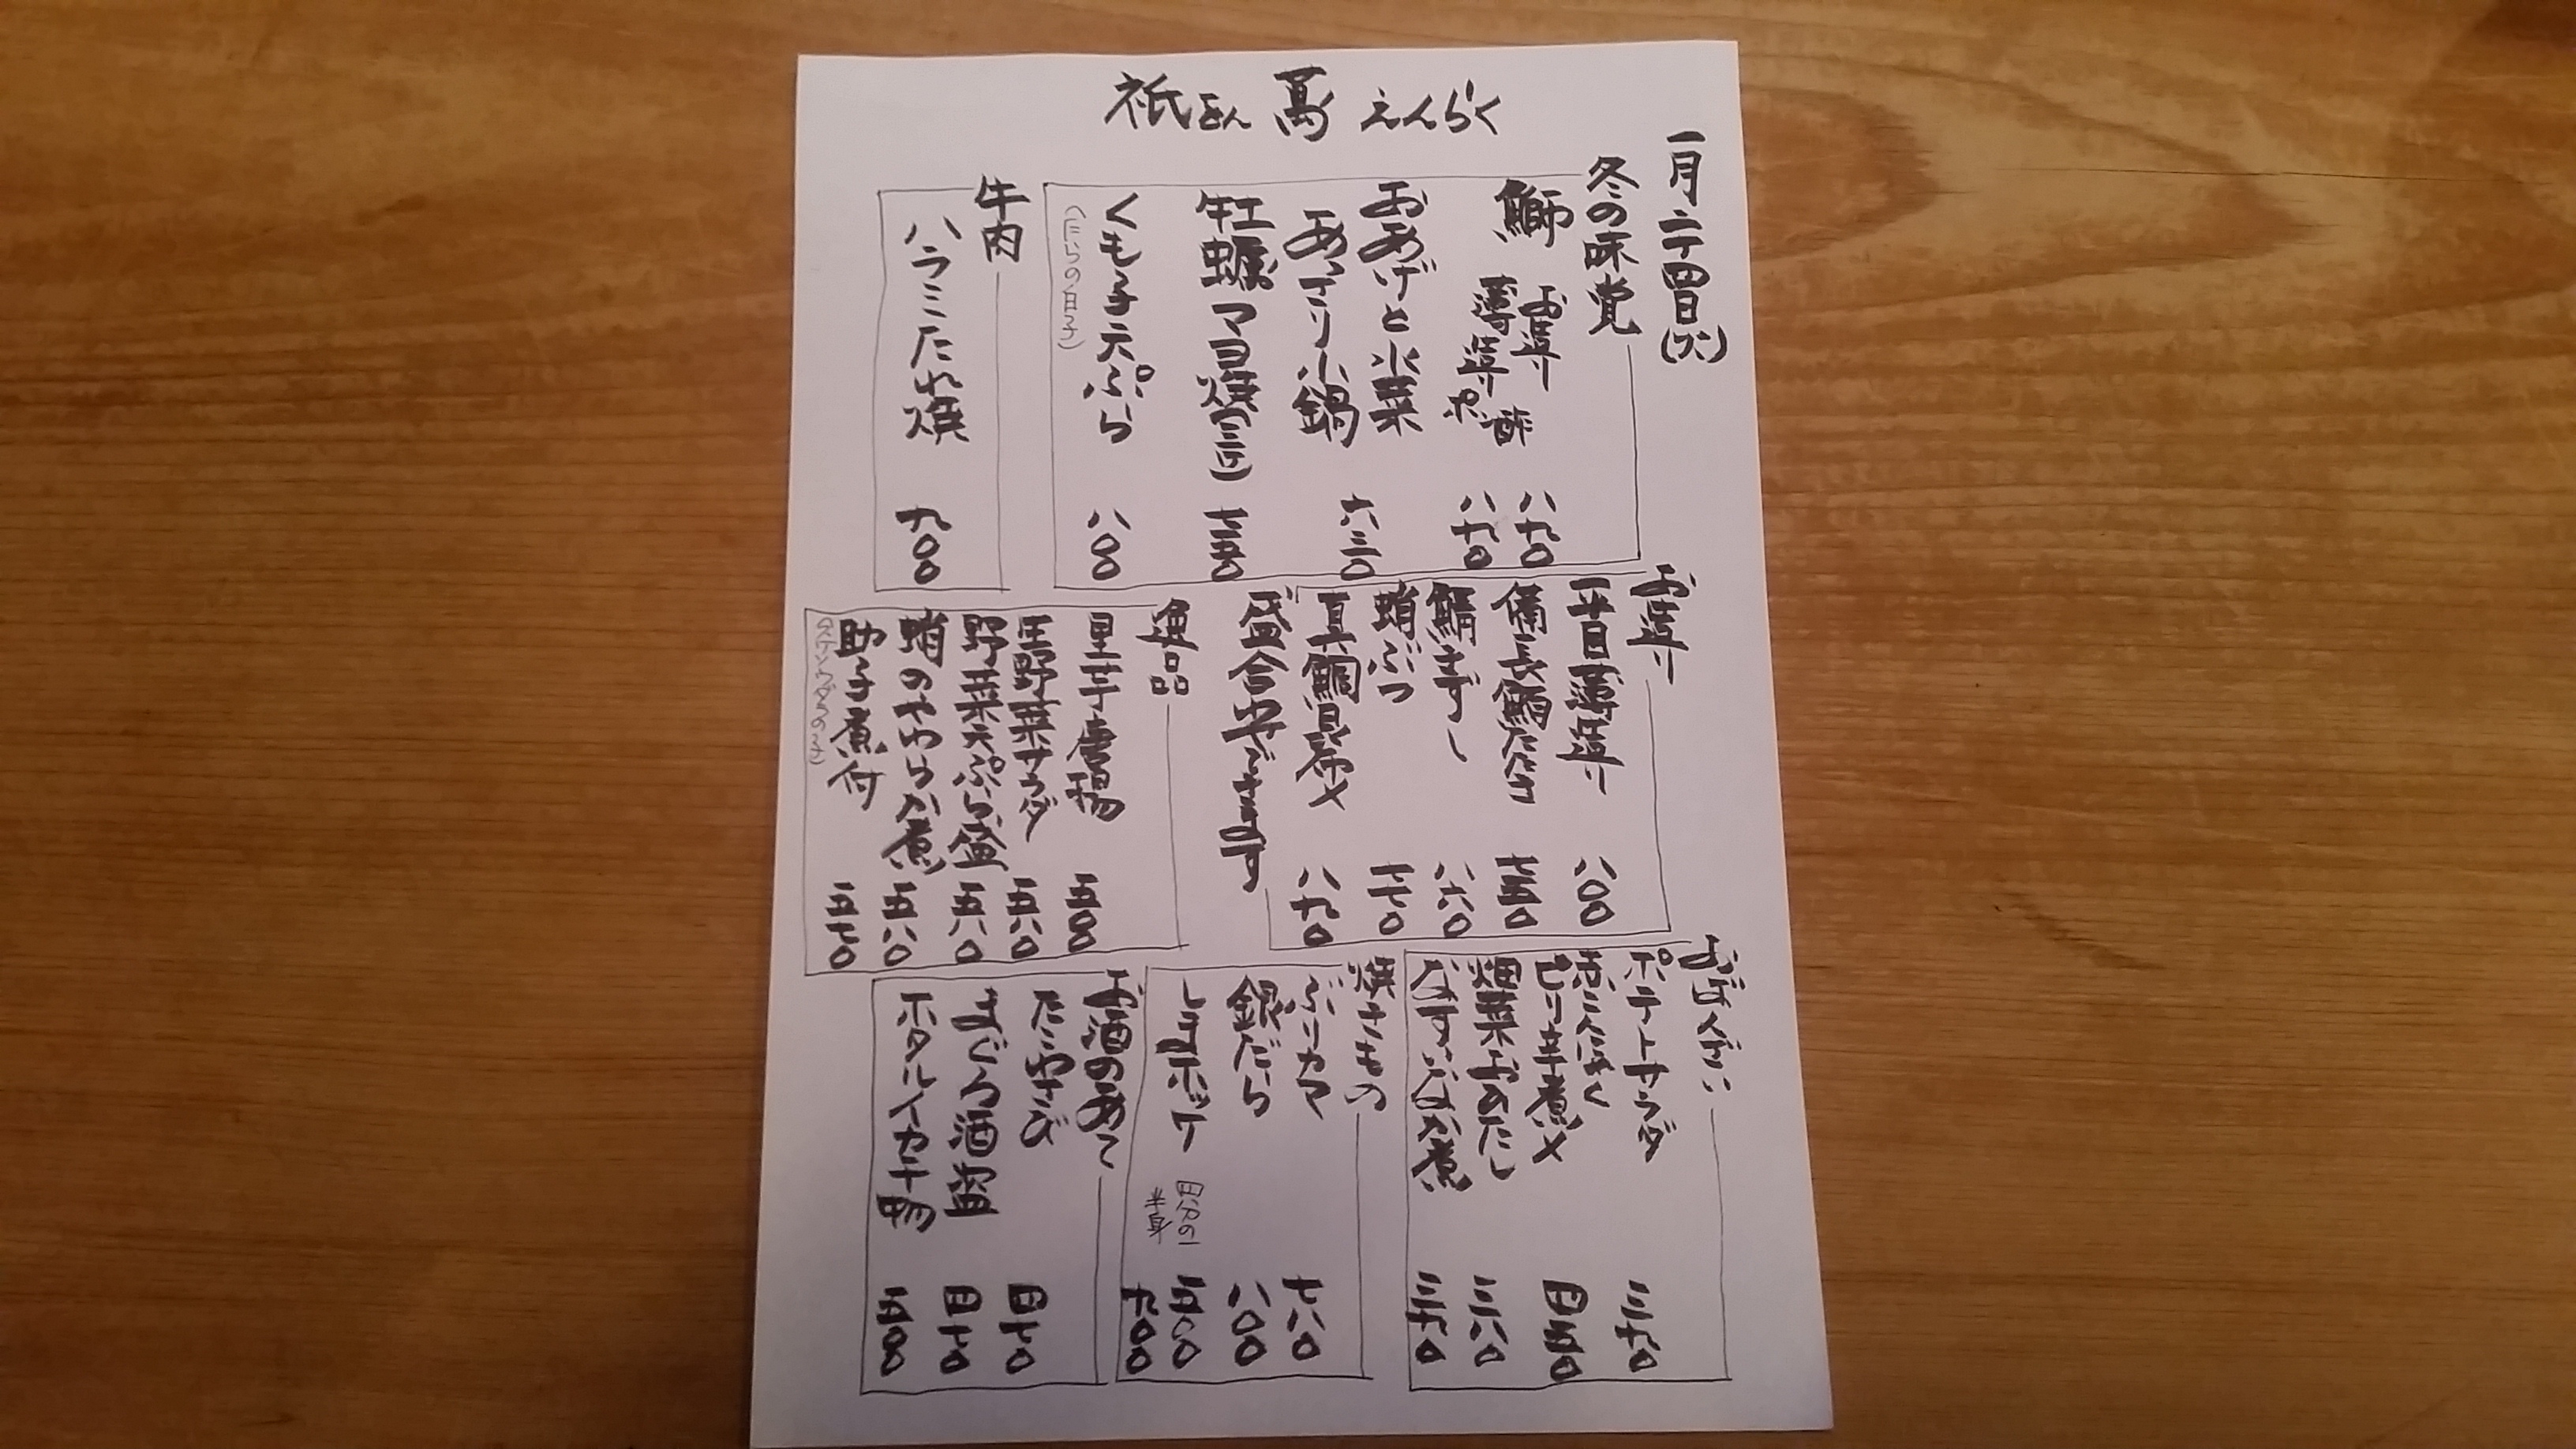 祇をん 萬 えんらく
一月二十四日(火)
冬の味覚
鰤 お造り 八九〇
薄造り ポン酢 八九〇
おあげと水菜
あっさり小鍋 六三〇
牡蠣マヨ焼(三ケ) 七五〇
くも子天ぷら 八〇〇
(たらの白子)
牛肉
ハラミたれ焼 九〇〇
お造り
平目薄造り 八〇〇
備長鮪たたき 七五〇
鯖きずし 八六〇
蛸ぶつ 七七〇
真鯛昆布〆 八九〇
盛合せできます
逸品
里芋唐揚 五〇〇
生野菜サラダ 五八〇
野菜天ぷら盛 五八〇
蛸のやわらか煮 五八〇
助子煮付 五七〇
(スケソウダラの子)
おばんざい
ポテトサラダ 三九〇
炊いたん
煮〆 四五〇
畑菜おひたし 三八〇
煮 三九〇
焼きもの
ぶりカマ 七八〇
銀だら 八〇〇
しまホッケ 四分の一 五〇〇
半身 九〇〇
お酒のあて
たこわさび 四七〇
まぐろ酒盗 四七〇
ホタルイカ干物 五〇〇